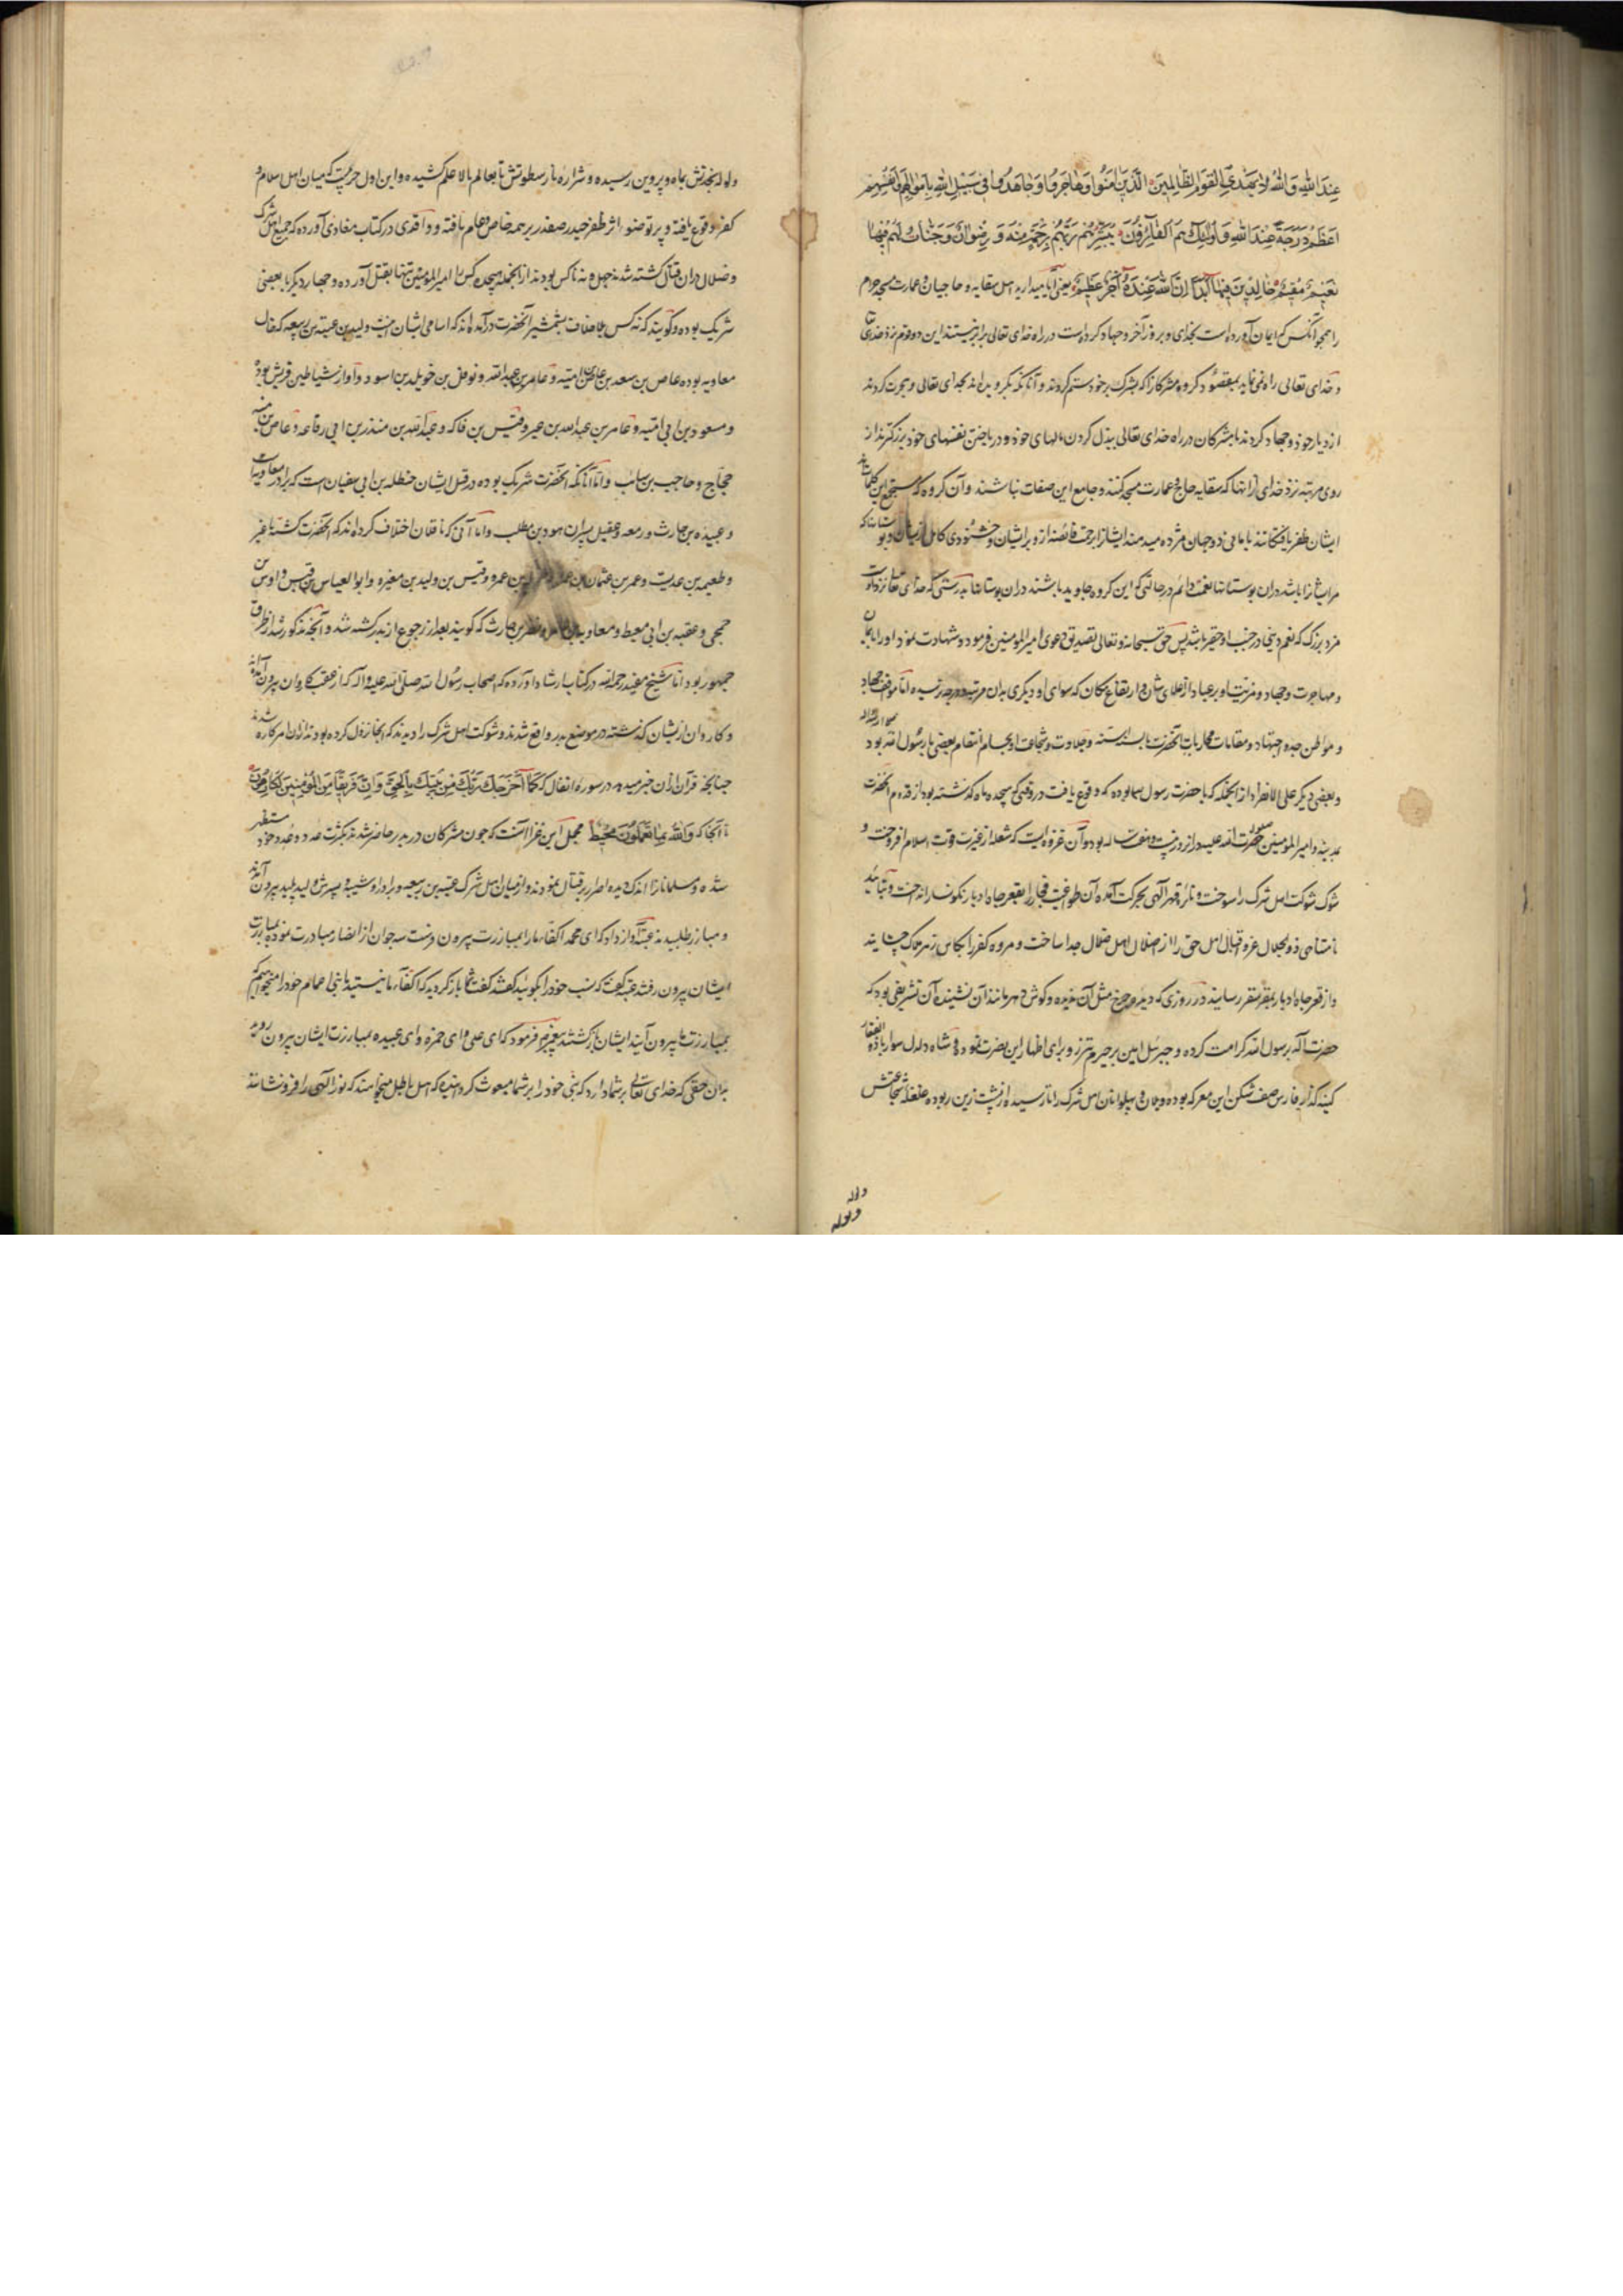 عِندَ اللهِ وَاللهُ لَا يَهْدِي الْقَوْمَ الظَّالِمِينَ الَّذِينَ آمَنُوا وَهَاجَرُوا وَجَاهَدُوا فِي سَبِيلِ اللهِ بِأَمْوَالِهِمْ وَأَنفُسِهِمْ
أَعْظَمُ دَرَجَةً عِندَ اللهِ وَأُولَئِكَ هُمُ الْفَائِزُونَ يُبَشِّرُهُمْ رَبُّهُم بِرَحْمَةٍ مِنْهُ وَرِضْوَانٍ وَجَنَّاتٍ لَهُمْ فِيهَا
نَعِيمٌ مُقِيمٌ خَالِدِينَ فِيهَا أَبَدًا إِنَّ اللهَ عِنْدَهُ أَجْرٌ عَظِيمٌ یعنی آیا میدارید اهل سقایه و حاجیان و عمارت مسجد حرام
را همچو آنکس که ایمان آورده است بخدای و بروز آخر و جهاد کرده است در راه خدای تعالی برابر نیستند این دو قوم نزد خدای
و خدای تعالی راه نمی نماید بمقصود گروه مشرکانرا که بشرک بر خود ستم کردند و آنانکه بگرویده اند بخدای تعالی و هجرت کردند
از دیار خود و جهاد کردند با مشرکان در راه خدای تعالی ببذل کردن مالهای خود و در باختن نفسهای خود بزرکترند از
روی مرتبه نزد خدای از انها که سقایه حاج و عمارت مسجد کنند و جامع این صفات نباشند و آن گروه که مستجمع این کمالات
ایشان ظفر یافتکانند بامانی دو جهان مژده میدهد ایشانرا برحمت و خشنودی کامل از ایشان و
مر ایشانرا باشد دران بوستانها نعمت دائم در حالتی که این گروه جاوید باشند دران بوستانها بدرستی که خدای تعالی نزد اوست
مزد بزرک که نعم دنیی در جنب او حقیر باشد پس حق سبحانه و تعالی تصدیق دعوی امیرالمومنین فرمود و شهادت نمود او را بایمان
و مهاجرت و جهاد و مزیت او بر عباد از علای شان و ارتفاع مکان که سوای او دیگری بدان مرتبه و درجه نرسیده اما مواقف جهاد
و مواطن جد و اجتهاد و مقامات محاربات آنحضرت و جلادت و شجاعت او بعضی با رسول الله بود
و بعضی دیگر علی الانفراد از انجمله که با حضرت رسول بوده که وقوع یافت در وقتی که هیجده ماه گذشته بود از قدوم آنحضرت
مدینه و امیرالمومنین بود و آن غزوه ایست که شعله از غیرت و قوت اسلام افروخت و
شوک شوکت اهل شرک را سوخت و نائره قهر الهی بحرکت آمده آن طواغیت فجار را بقعر چاه ادبار نکونسار انداخت و بتأیید
نامتناهی ذو الجلال غره اقبال اهل حق را از ضلال اهل ضلال جدا ساخت و مروه کفر را کاس زهر هلاک چشانید
و از قعر چاه ادبار بمقر سقر رسانید در روزی که دیده چرخ مثل آن ندیده و گوش دهر مانند آن نشنیده آن تشریفی بود که
حضرت اله برسول الله کرامت کرده و جبرئیل امین و برای اظهار این نصرت نموده و شاه دلدل سوار با ذوالفقار
کینه گذار فارس صف شکن این معرکه بوده و جان و پهلوانان اهل شرک را از پشت زین ربوده غلغله شجاعتش
ولوله
ولوله
ولوله نجدتش بماه و پروین رسیده و شراره نار سطوتش تا بعالم بالا علم کشیده و این اول حربیست که میان اهل اسلام و
کفر وقوع یافته و پرتو ضوء اثر ظفر حیدر صفدر بر همه خاص و عام تافته و واقدی در کتاب مغازی آورده که جمیع اهل شرک
و ضلال دران قتال کشته شدند چهل و نه کس بودند از انجمله هیجده کس را امیرالمومنین تنها بقتل آورده و چهار دیگر با بعضی
شریک بوده و گویند که نه کس بلا خلاف بشمشیر آنحضرت درآمده اند که اسامی ایشان اینست ولید بن عتبه بن ربیعه که خال
معاویه بوده عاص بن سعد بن عاص بن امیه و عامر بن عبدالله و نوفل بن خویلد بن اسود و او از شیاطین قریش بود
و مسعود بن ابی امیه و عامر بن عبدالله بن عمیر و قیس بن فاکه و عبدالله بن منذر بن ابی رفاعه و عاص بن منبه
حجاج و حاجب بن سائب و اما آنانکه آنحضرت شریک بوده در قتل ایشان حنظله بن ابی سفیان است که برادر معاویه است
و عبیده بن حارث و زمعه و عقیل پسران اسود بن مطلب و اما آنی که ناقلان اختلاف کرده اند که آنحضرت کشته یا غیر
و طعیمه بن عدیست و عمر بن عثمان بن عمرو و قیس بن ولید بن مغیره و ابو العباس بن قیس و اوس
جمحی و عقبه بن ابی معیط و معاویه بن عامر و نضر بن حارث که گویند بعد از رجوع از بدر کشته شد و آنچه مذکور شد از طرق
جمهور بود اما شیخ مفید رحمه الله در کتاب ارشاد آورده که اصحاب رسول الله صلی الله علیه و آله که از عقب کاروان بیرون آمده
و کاروان از ایشان گذشته در موضع بدر واقع شدند و شوکت اهل شرک را دیدند که انجا نزول کرده بودند از ان امر کاره شدند
چنانچه قرآن ازان خبر میدهد در سوره انفال که كَمَا أَخْرَجَكَ رَبُّكَ مِنْ بَيْتِكَ بِالْحَقِّ وَإِنَّ فَرِيقًا مِنَ الْمُؤْمِنِينَ لَكَارِهُونَ
تا آنجا که وَاللهُ بِمَا يَعْمَلُونَ مُحِيطٌ مجمل این غزا آنست که چون مشرکان در بدر حاضر شدند بکثرت عدد و عُدد خود مستظهر
شده و مسلمانانرا اندک دیده اصرار بر قتال نمودند و از میان اهل شرک عتبه بن ربیعه و برادر او شیبه و پسرش ولید پلید بیرون آمدند
و مبارز طلبیدند عتبه آواز داد که ای محمد اکفاء ما را بمبارزت بیرون فرست سه جوان از انصار مبادرت نموده بمبارزت
ایشان بیرون رفتند عتبه گفت که نسب خود را بگوئید گفتند گفت شما بازگردید که اکفاء ما نیستید ما بنی اعمام خود را میخواهیم که
بمبارزت ما بیرون آیند ایشان بازگشتند پیغمبر فرمود که ای علی و ای حمزه و ای عبیده بمبارزت ایشان بیرون روید
بدان حقی که خدای تعالی بر شما دارد که نبی خود را بر شما مبعوث گردانیده که اهل باطل میخواهند که نور الهی را فرو نشانند